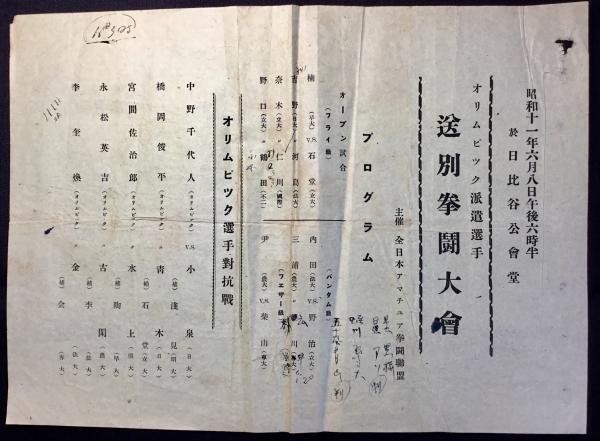 昭和十一年六月八日午後六時半
於日比谷公會堂
オリムピツク派遣選手
送別拳闘大會
主催 全日本アマチユア拳闘聯盟
プログラム
オープン試合
(フライ級)
楠(早大) V.S. 石堂(立大)
吉野(日大) 〃 河島(法大)
奈木(立大) 〃 仁川(國際)
野口(立大) 〃 鶴田(不二)
(バンタム級)
内田(法大) V.S. 野治(立大)
三浦(農大) 〃 川
(フェザー級)
尹(農大) V.S. 柴山(專大)
オリムピツク選手對抗戰
中野千代人(オリムピツク) V.S. 小泉(日大)
(補)淺見(明大)
橋岡俊平(オリムピツク) 〃 青木(日大)
(補)石堂(立大)
宮間佐治郎(オリムピツク) 〃 水上(明大)
(補)陶(早大)
永松英吉(オリムピツク) 〃 古閑(農大)
(補)李
李奎煥(オリムピツク) 〃 金
(補)金(專大)